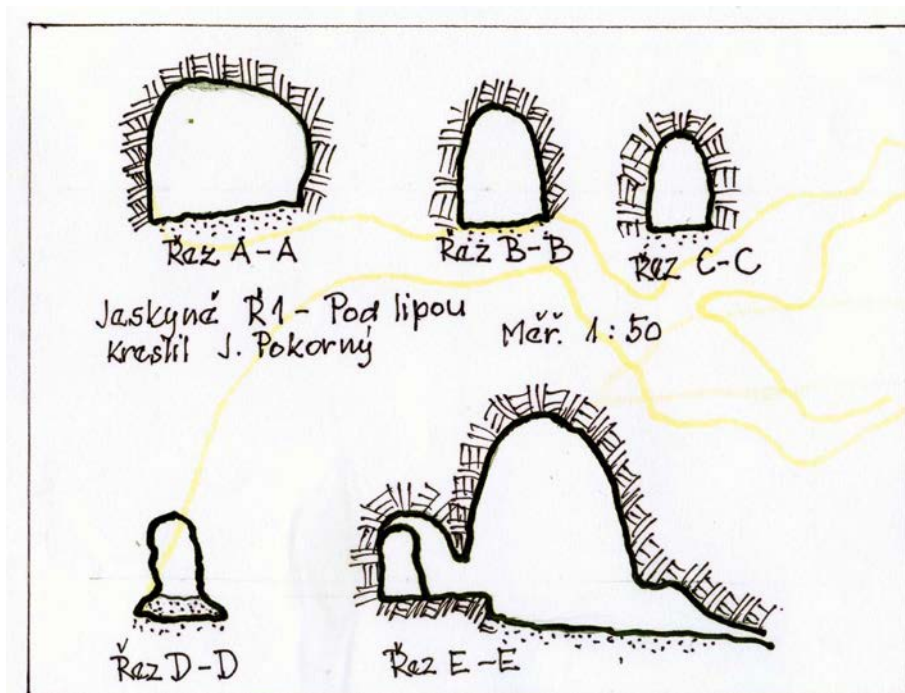 Řez A-A
Řez B-B
Řez C-C
Jaskyně Ř1 - Pod lipou
Kreslil J. Pokorný
Měř. 1:50
Řez D-D
Řez E-E